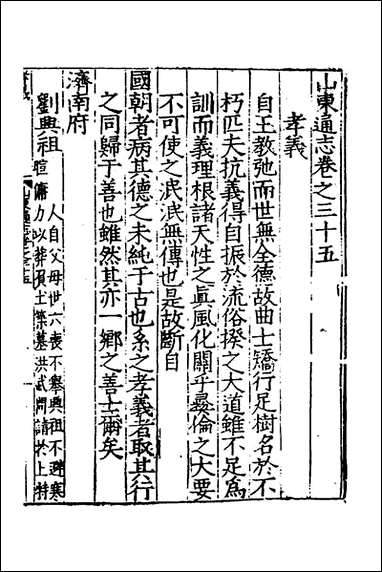 山東通志卷之三十五
孝義
自王教弛而世無全德故曲士矯行足樹名於不
朽匹夫抗義得自振於流俗揆之大道雖不足爲
訓而義理根諸天性之眞風化關乎彜倫之大要
不可使之泯泯無傳也是故斷自
國朝者病其德之未純于古也系之孝義者取其行
之同歸于善也雖然其亦一鄉之善士爾矣
濟南府
劉興祖
人自父母世六喪不舉興祖不避寒
暄傭力以葬負土築墓洪武間請於上特